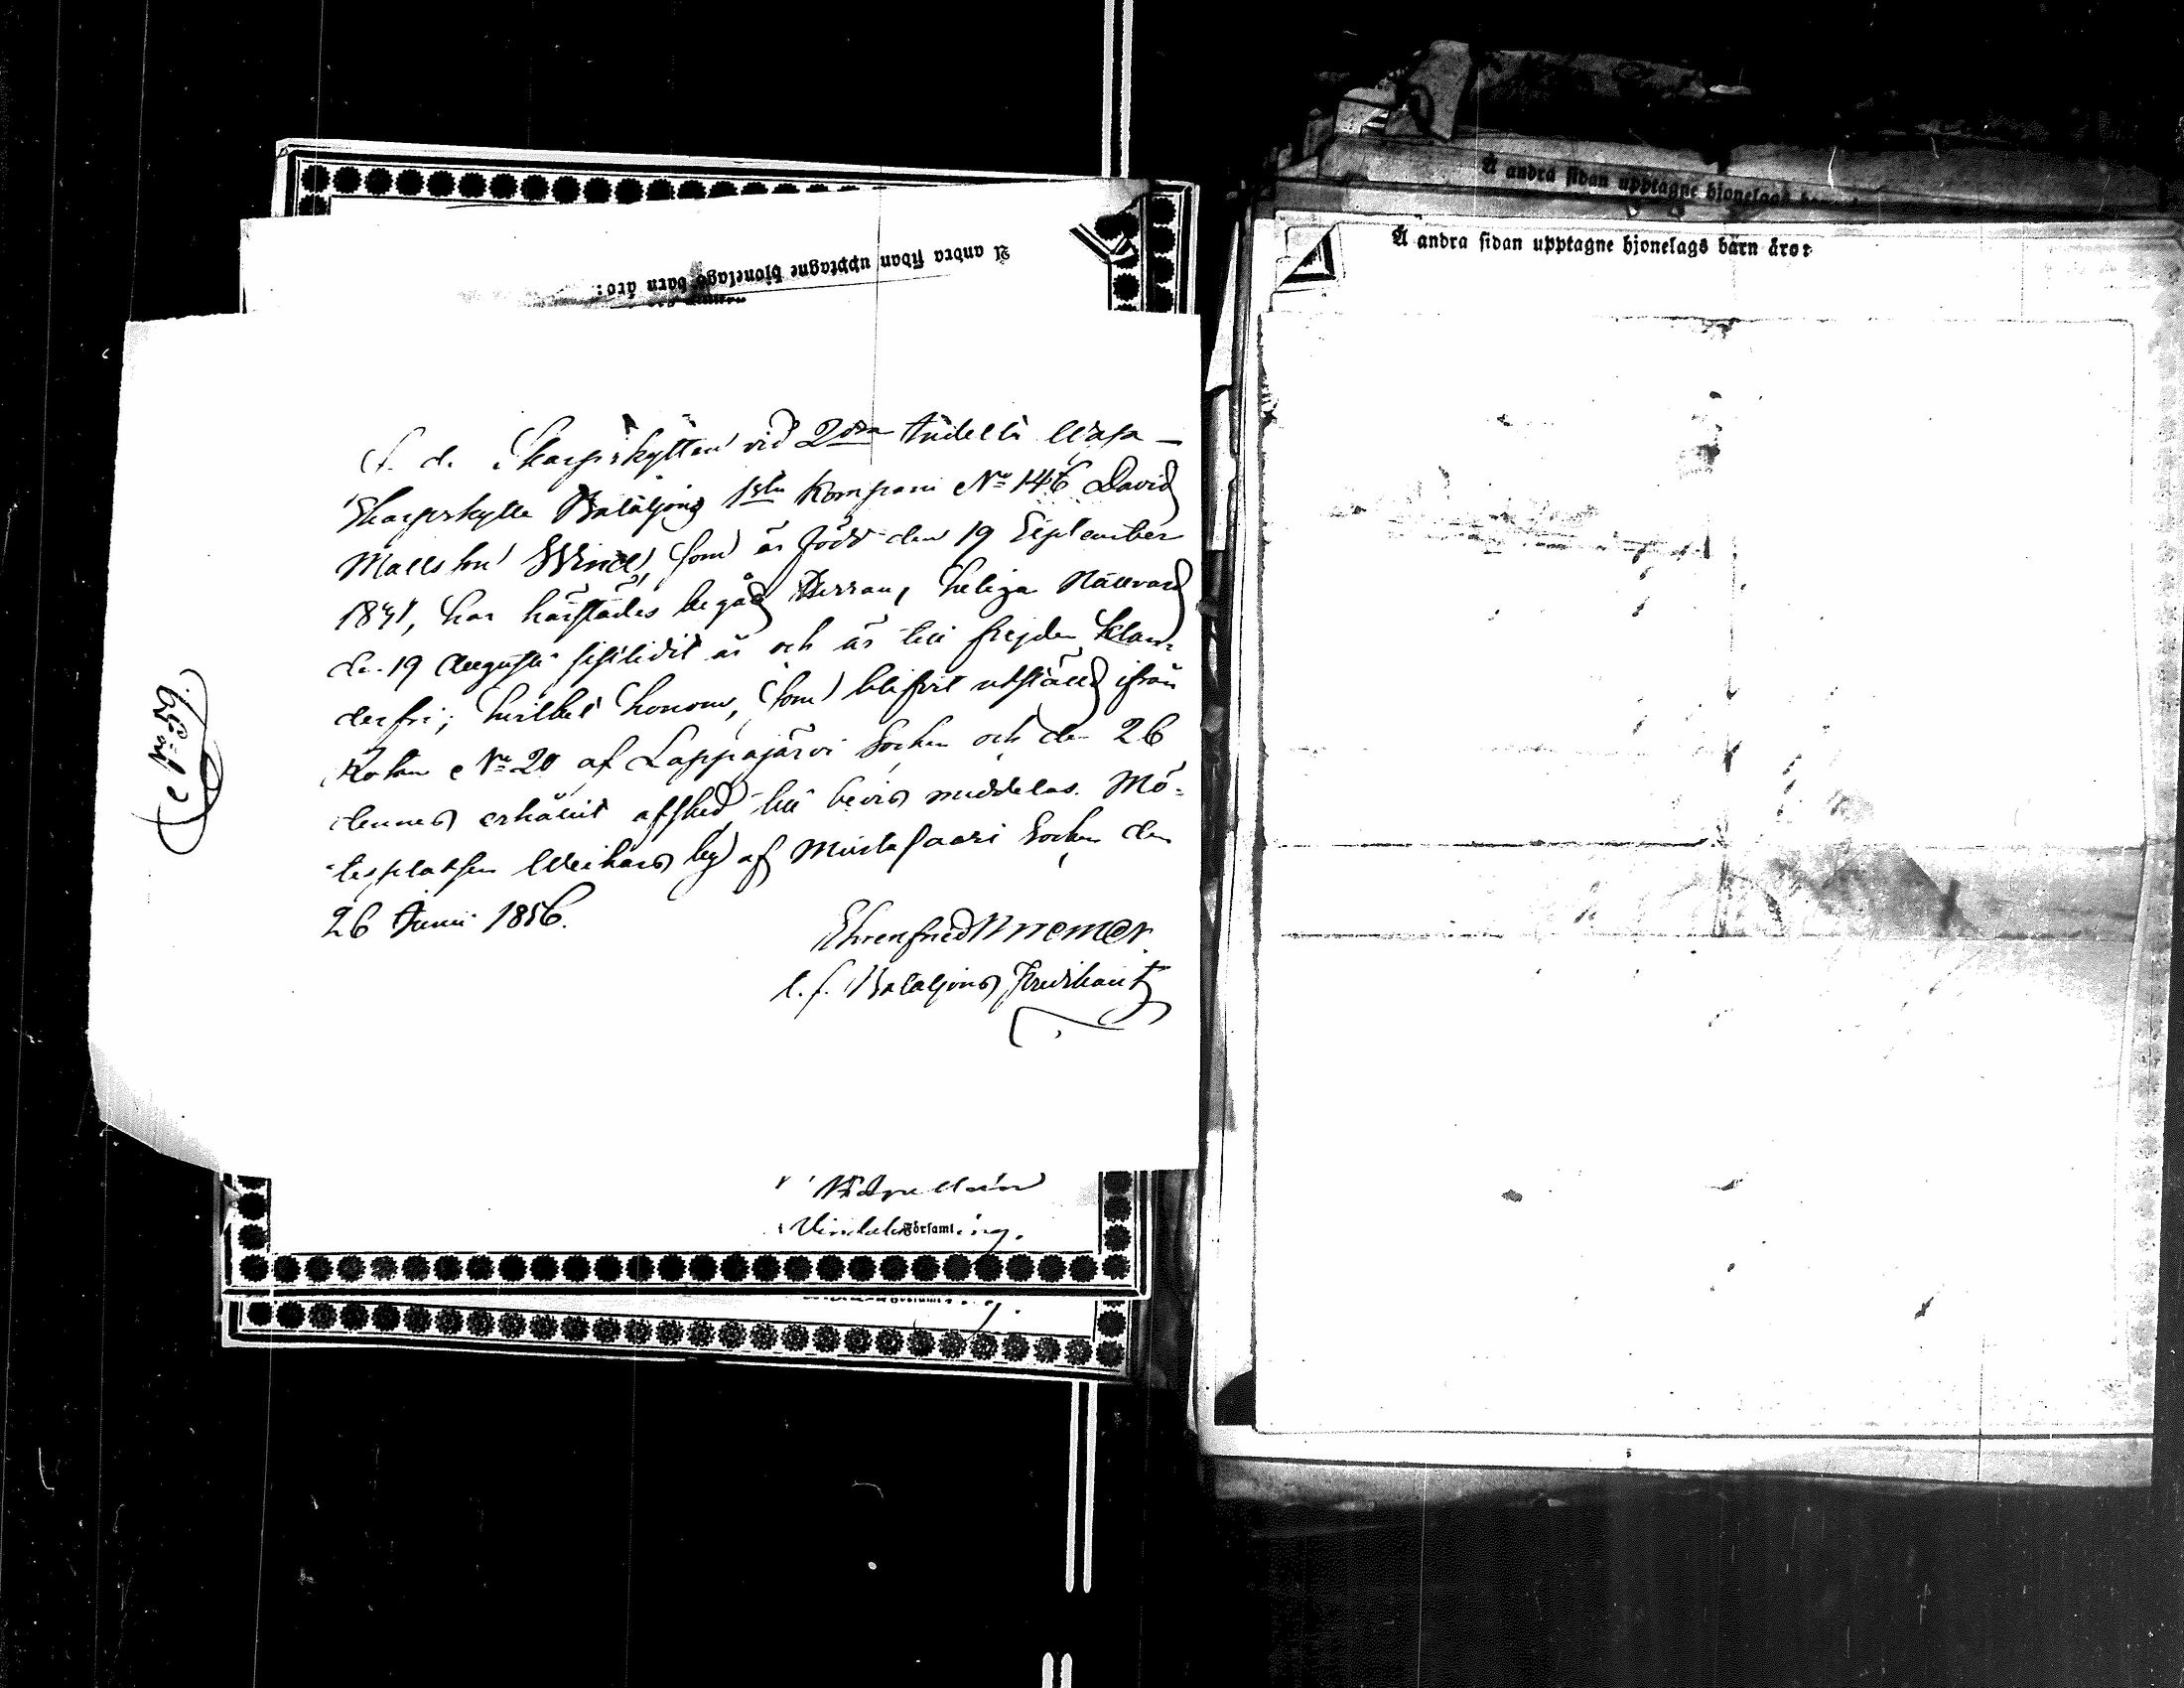 Å andra sidan upptagne hjonelags barn äro:
F. d. Skarpskytten vid 2dra Indelta Wasa
Skarpskytte Bataljons 1sta Kompani No 146 David
Matts son Wind, som är född den 19 September
1831, har härstädes begått Herrans heliga Nattvard
den 19 Augusti sistlidit år och är till frejden klan-
derfri; hvilket honom, som blifvit utstäld ifrån
Rotan No 20 af Lappajärvi Socken och den 26
dennes erhållit afsked till bevis meddelas. Mö-
tesplatsen Weikars by af Mustasaari Socken den
26 Junii 1856.
Ehrenfried
t. f. Bataljons Predikant
Vindala Församling.
Å andra sidan upptagne hjonelags
Å andra sidan upptagne hjonelags barn äro: